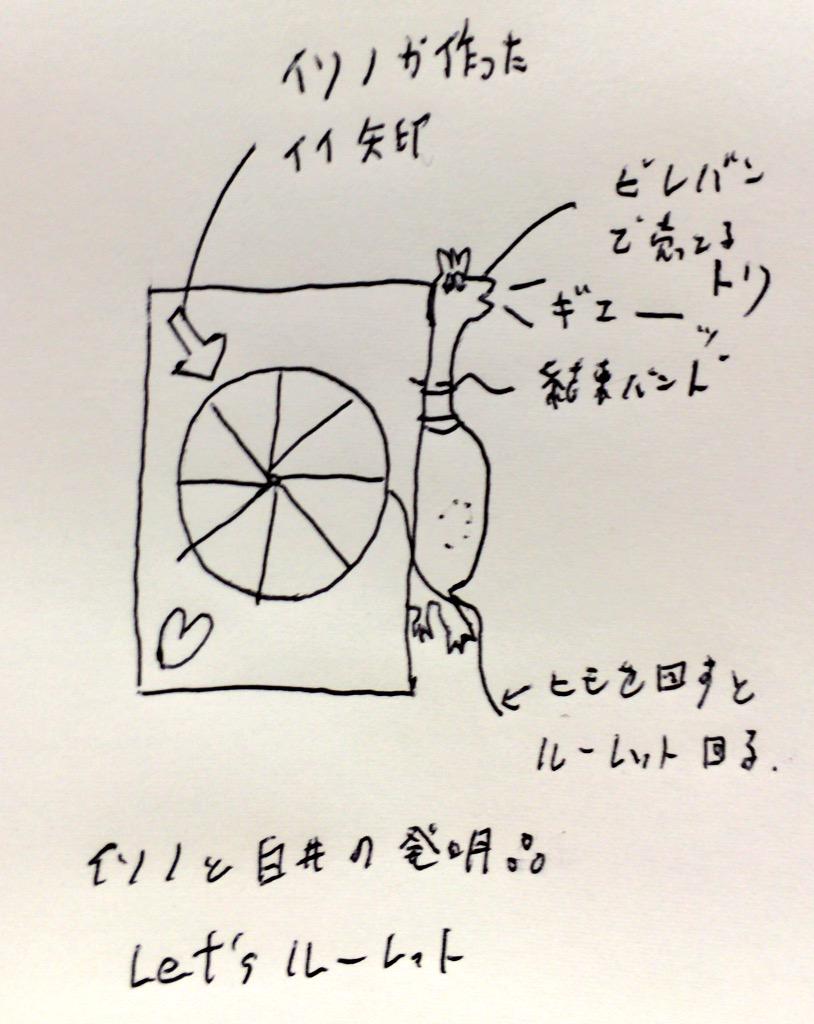 イソノが作った
イイ矢印
ビレバン
で売ってる
トリ
ギエーッ
結束バンド
ヒモを回すと
ルーレット回る.
イソノと白井の発明品
Let's ルーレット